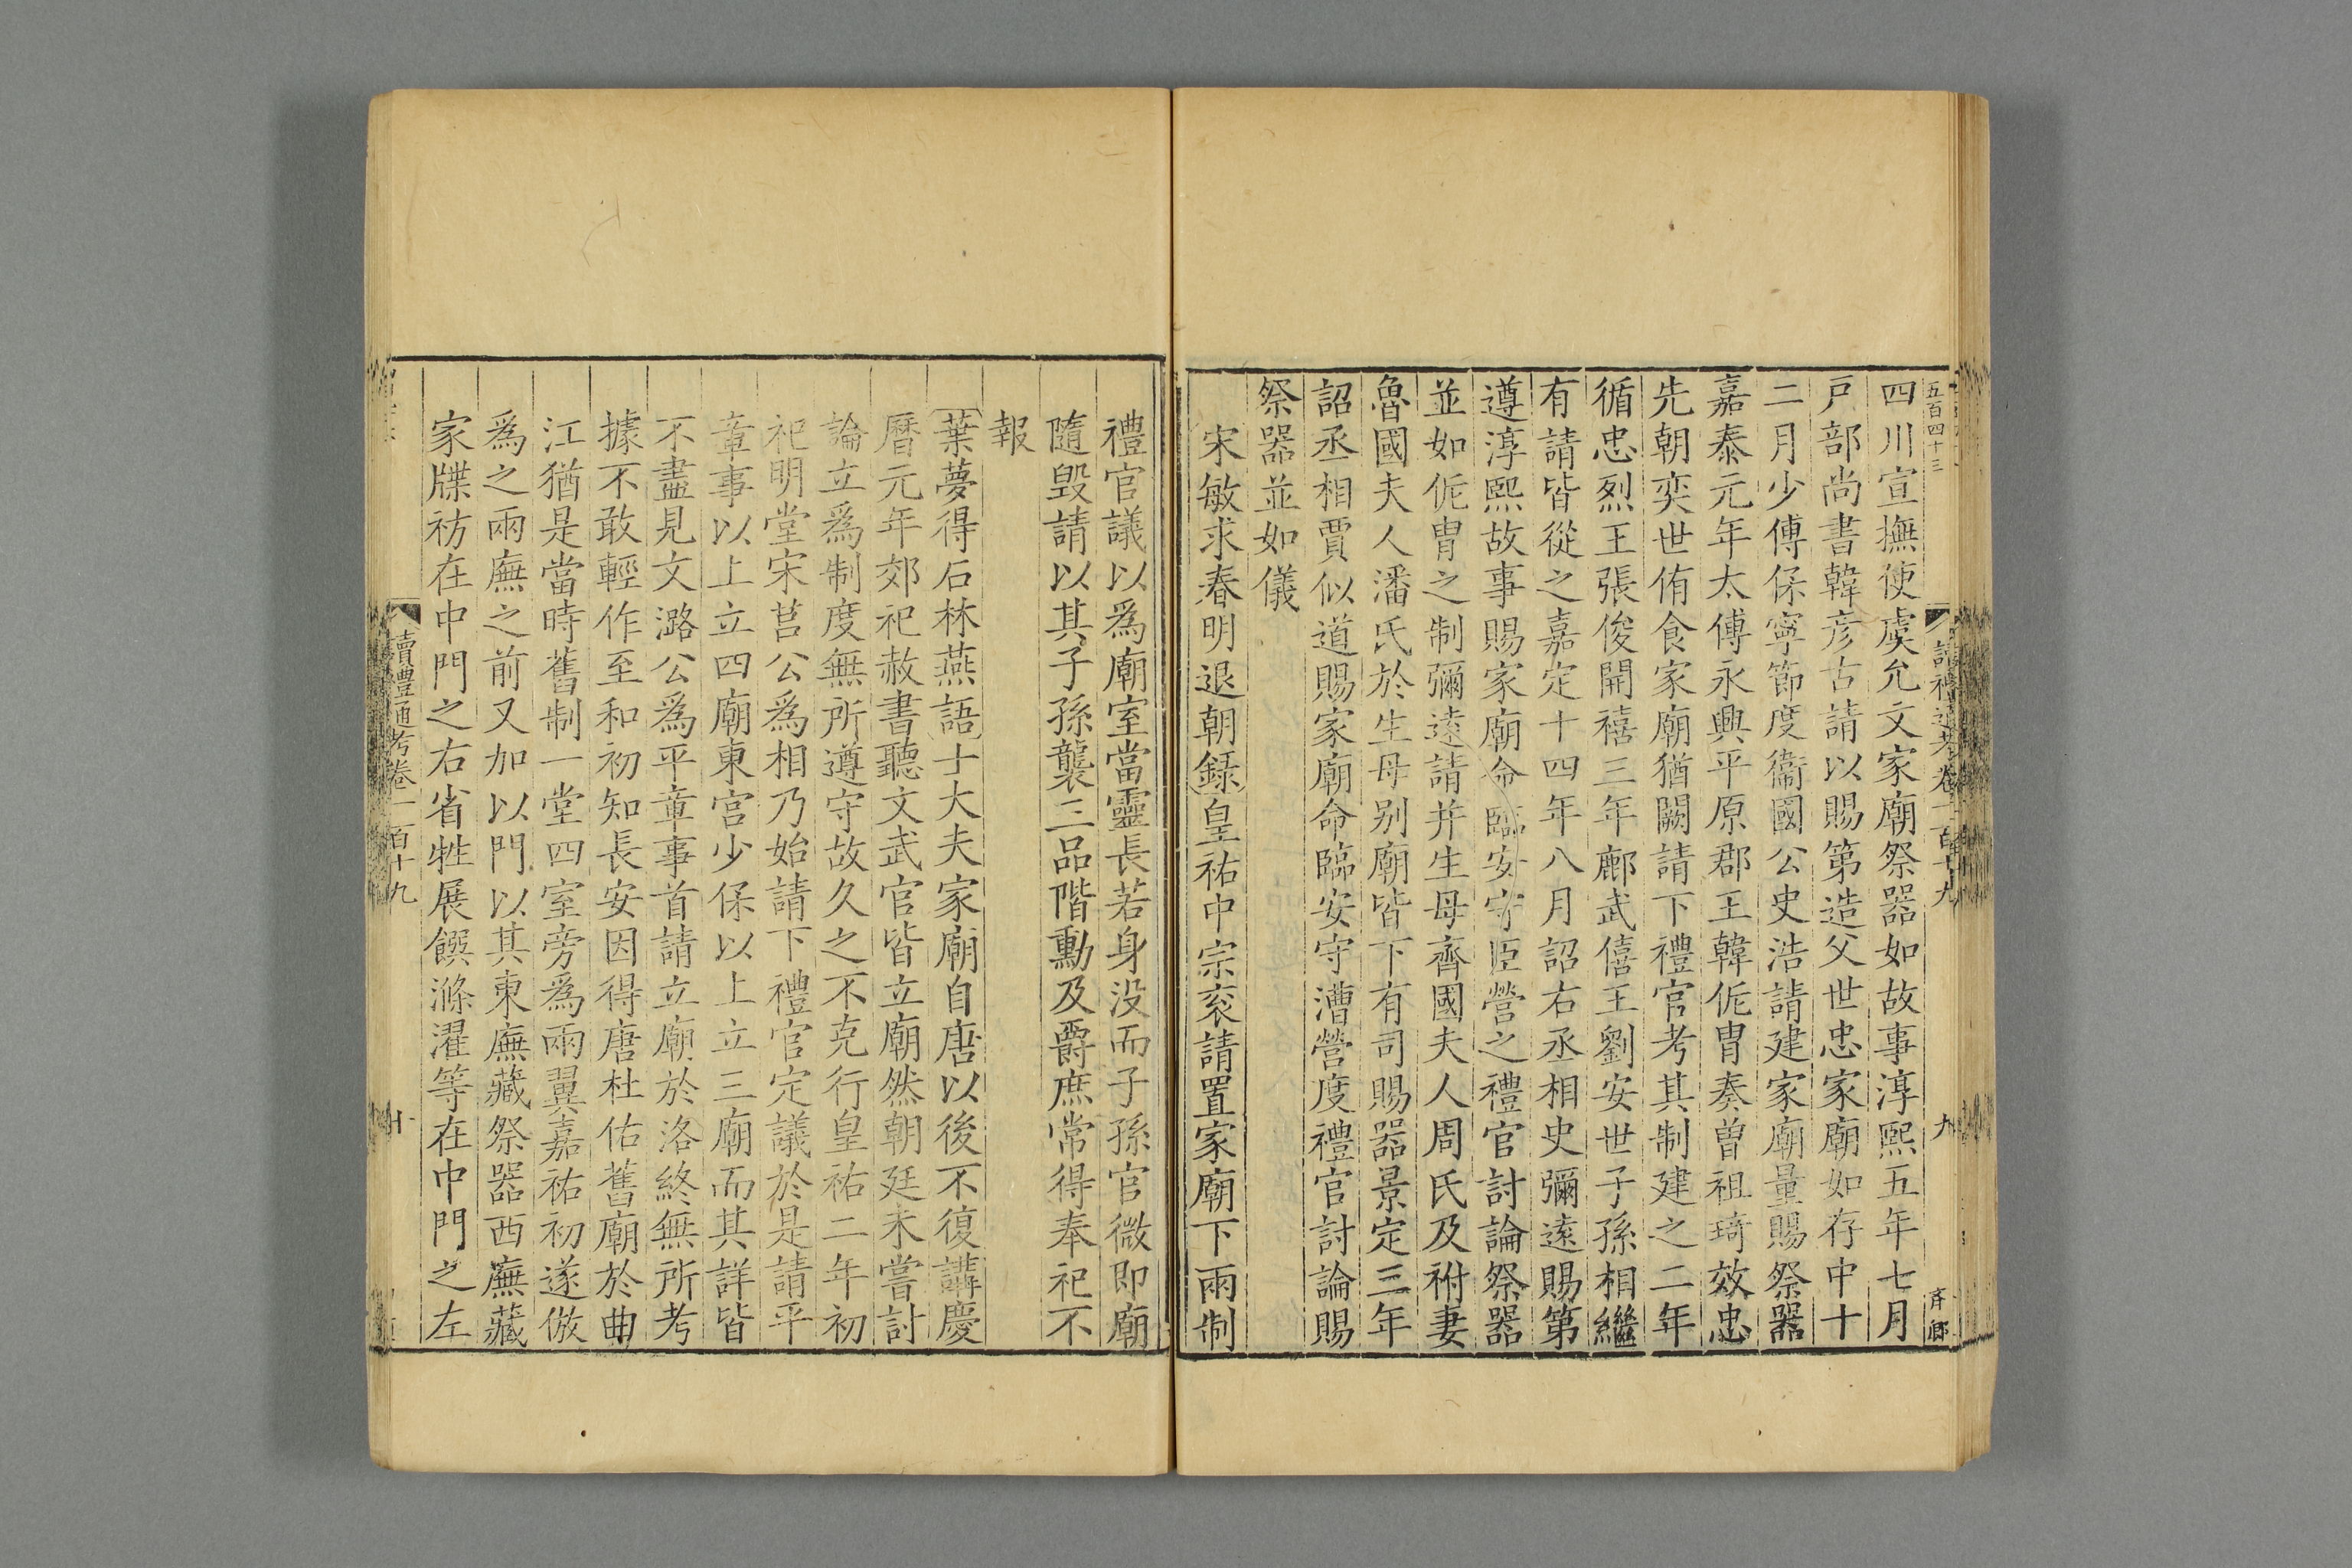 五百四十三
讀禮通考卷一百十九
九
四川宣撫使虞允文家廟祭器如故事淳熙五年七月
戸部尚書韓彦古請以賜第造父世忠家廟如存中十
二月少傅保寧節度衞國公史浩請建家廟量賜祭器
嘉泰元年太傅永興平原郡王韓侂冑奏曽祖琦效忠
先朝奕世侑食家廟猶闕請下禮官考其制建之二年
循忠烈王張俊開禧三年鄜武僖王劉安世子孫相繼
有請皆從之嘉定十四年八月詔右丞相史彌遠賜第
遵淳熙故事賜家廟命臨安守臣營之禮官討論祭器
並如侂冑之制彌遠請并生母齊國夫人周氏及祔妻
魯國夫人潘氏於生母别廟皆下有司賜器景定三年
詔丞相賈似道賜家廟命臨安守漕營度禮官討論賜
祭器並如儀
宋敏求春明退朝録皇祐中宗衮請置家廟下兩制
禮官議以爲廟室當靈長若身没而子孫官微即廟
隨毁請以其子孫襲三品階勳及爵庶常得奉祀不
報
葉夢得石林燕語士大夫家廟自唐以後不復講慶
曆元年郊祀赦書聽文武官皆立廟然朝廷未嘗討
論立爲制度無所遵守故久之不克行皇祐二年初
祀明堂宋莒公爲相乃始請下禮官定議於是請平
章事以上立四廟東宫少保以上立三廟而其詳皆
不盡見文潞公爲平章事首請立廟於洛終無所考
據不敢輕作至和初知長安因得唐杜佑舊廟於曲
江猶是當時舊制一堂四室旁爲兩翼嘉祐初遂倣
爲之兩廡之前又加以門以其東廡藏祭器西廡藏
家牒祊在中門之右省牲展饌滌濯等在中門之左
讀禮通考卷一百十九
十